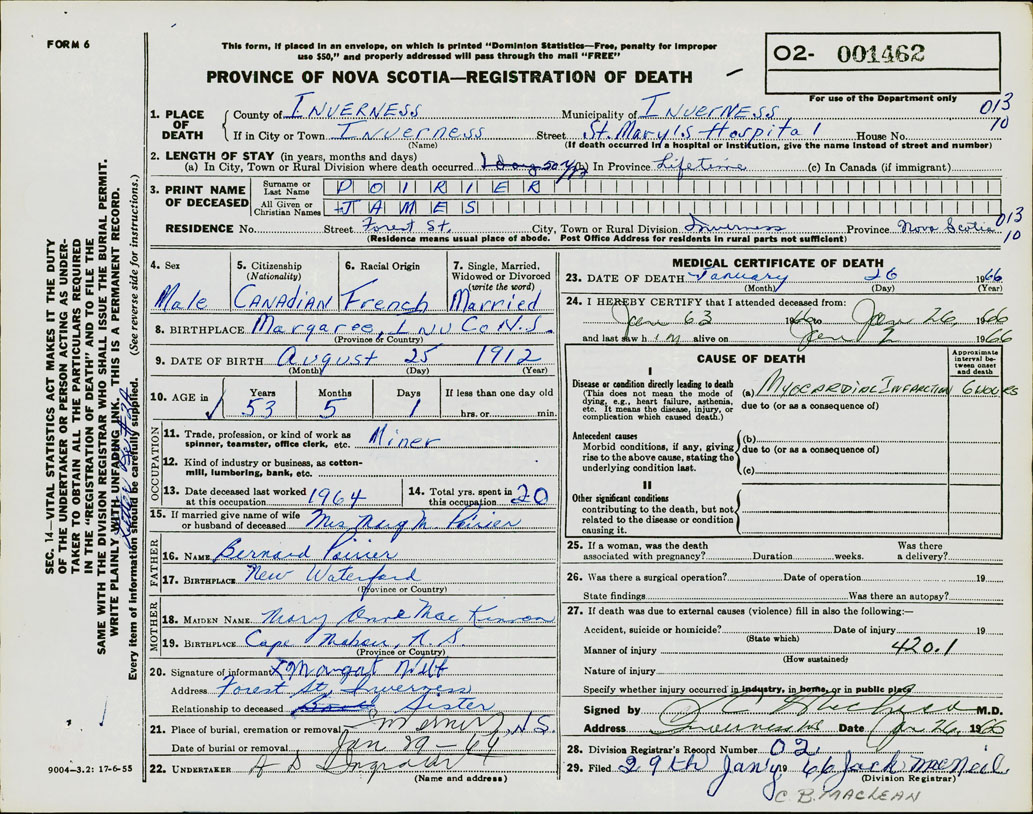 FORM 6
This form, if placed in an envelope, on which is printed "Dominion Statistics—Free, penalty for improper
use $50," and properly addressed will pass through the mail "FREE"
PROVINCE OF NOVA SCOTIA—REGISTRATION OF DEATH
02- 001462
For use of the Department only
1. PLACE OF DEATH
County of INVERNESS Municipality of INVERNESS 013
If in City or Town Inverness Street St. Mary's Hospital House No. 10
(Name) (If death occurred in a hospital or institution, give the name instead of street and number)
2. LENGTH OF STAY (in years, months and days)
(a) In City, Town or Rural Division where death occurred (b) In Province Lifetime (c) In Canada (if immigrant)
3. PRINT NAME OF DECEASED
Surname or Last Name POIRIER
All Given or Christian Names JAMES
RESIDENCE No. Street Forest St. City, Town or Rural Division Inverness Province Nova Scotia 013 10
(Residence means usual place of abode. Post Office Address for residents in rural parts not sufficient)
4. Sex Male
5. Citizenship (Nationality) CANADIAN
6. Racial Origin French
7. Single, Married, Widowed or Divorced (write the word) Married
8. BIRTHPLACE Margaree, Inv Co N.S.
(Province or Country)
9. DATE OF BIRTH August 25 1912
(Month) (Day) (Year)
10. AGE in Years 53 Months 5 Days 1 If less than one day old hrs. or min.
OCCUPATION
11. Trade, profession, or kind of work as spinner, teamster, office clerk, etc. Miner
12. Kind of industry or business, as cotton-mill, lumbering, bank, etc.
13. Date deceased last worked at this occupation 1964
14. Total yrs. spent in this occupation 20
15. If married give name of wife or husband of deceased Mrs Mary M. Poirier
FATHER
16. NAME Bernard Poirier
17. BIRTHPLACE New Waterford
(Province or Country)
MOTHER
18. MAIDEN NAME Mary Anne MacKinnon
19. BIRTHPLACE Cape Mabou, N.S.
(Province or Country)
20. Signature of informant
Address Forest St, Inverness
Relationship to deceased Sister
21. Place of burial, cremation or removal N.S.
Date of burial or removal Jan 29-
22. UNDERTAKER A D
(Name and address)
MEDICAL CERTIFICATE OF DEATH
23. DATE OF DEATH January 26 1966
(Month) (Day) (Year)
24. I HEREBY CERTIFY that I attended deceased from:
Jan 63 19 to Jan 26, 1966
and last saw h im alive on Jan 2 1966
CAUSE OF DEATH
Approximate interval between onset and death
I
Disease or condition directly leading to death (a) MYOCARDIAL INFARCTION 6 HOURS
(This does not mean the mode of dying, e.g., heart failure, asthenia, etc. It means the disease, injury, or complication which caused death.)
due to (or as a consequence of)
Antecedent causes
Morbid conditions, if any, giving rise to the above cause, stating the underlying condition last.
(b)
due to (or as a consequence of)
(c)
II
Other significant conditions
contributing to the death, but not related to the disease or condition causing it.
25. If a woman, was the death associated with pregnancy? Duration weeks. Was there a delivery?
26. Was there a surgical operation? Date of operation 19
State findings Was there an autopsy?
27. If death was due to external causes (violence) fill in also the following:—
Accident, suicide or homicide? Date of injury 19
(State which)
Manner of injury 420.1
(How sustained)
Nature of injury
Specify whether injury occurred in industry, in home, or in public place
Signed by M.D.
Address Inverness NS Date Jan 26, 1966
28. Division Registrar's Record Number 02
29. Filed 29th Jan'y. 66 Jack MacNeil
(Division Registrar)
C. B. MACLEAN
SEC. 14—VITAL STATISTICS ACT MAKES IT THE DUTY
OF THE UNDERTAKER OR PERSON ACTING AS UNDER-
TAKER TO OBTAIN ALL THE PARTICULARS REQUIRED
IN THE "REGISTRATION OF DEATH" AND TO FILE THE
SAME WITH THE DIVISION REGISTRAR WHO SHALL ISSUE THE BURIAL PERMIT.
WRITE PLAINLY WITH UNFADING INK. THIS IS A PERMANENT RECORD.
Every item of information should be carefully supplied. (See reverse side for instructions.)
9004—3.2: 17-6-55